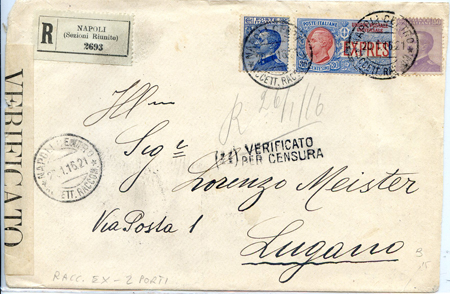 R
NAPOLI
(Sezioni Riunite)
2693
POSTE ITALIANE
EXPRES
NAPOLI CENTRO
ACCETT. RACCOM.
R 26/1/16
VERIFICATO
PER CENSURA
Ill mo
Sig r
Lorenzo Meister
Via Posta 1
Lugano
NAPOLI CENTRO
1.16.21
ACCETT. RACCOM.
VERIFICATO
RACC. EX - 2 PORTI